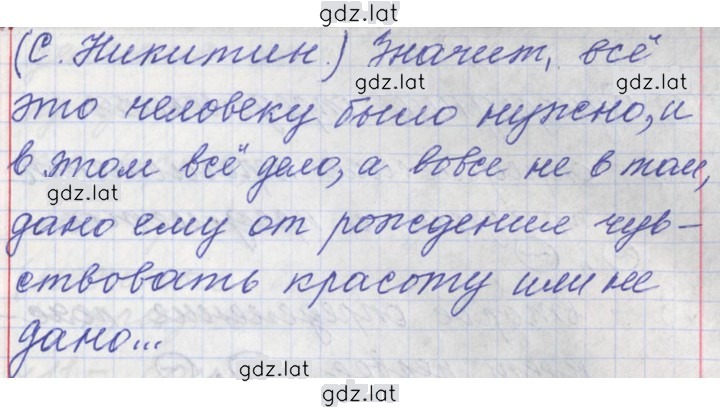 gdz.lat
(С. Никитин.) Значит, всё
gdz.lat
gdz.lat
это человеку было нужно, и
в этом всё дело, а вовсе не в том,
gdz.lat
gdz.lat
дано ему от рождения чув-
ствовать красоту или не
дано...
gdz.lat
gdz.lat